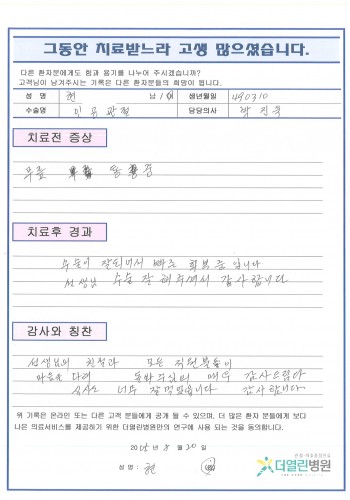 그동안 치료받느라 고생 많으셨습니다.
다른 환자분에게도 힘과 용기를 나누어 주시겠습니까?
고객님이 남겨주시는 기록은 다른 환자분들의 희망이 됩니다.
성 명 현 남 / 여 생년월일 490310
수술명 인공관절 담당의사 박진욱
치료전 증상
무릎 통증
치료후 경과
수술이 잘되어서 빠른 회복중 입니다
선생님 수술 잘 해주셔서 감사합니다
감사와 칭찬
선생님의 친절과 모든 직원분들이
마음을 다해 돌봐주심이 매우 감사드립니다
식사도 너무 잘먹었습니다 감사합니다
위 기록은 온라인 또는 다른 고객 분들에게 공개 될 수 있으며, 더 많은 환자 분들에게 보다
나은 의료서비스를 제공하기 위한 더열린병원만의 연구에 사용 되는 것을 동의합니다.
20 년 8 월 20 일
성 명 : 현
더열린병원